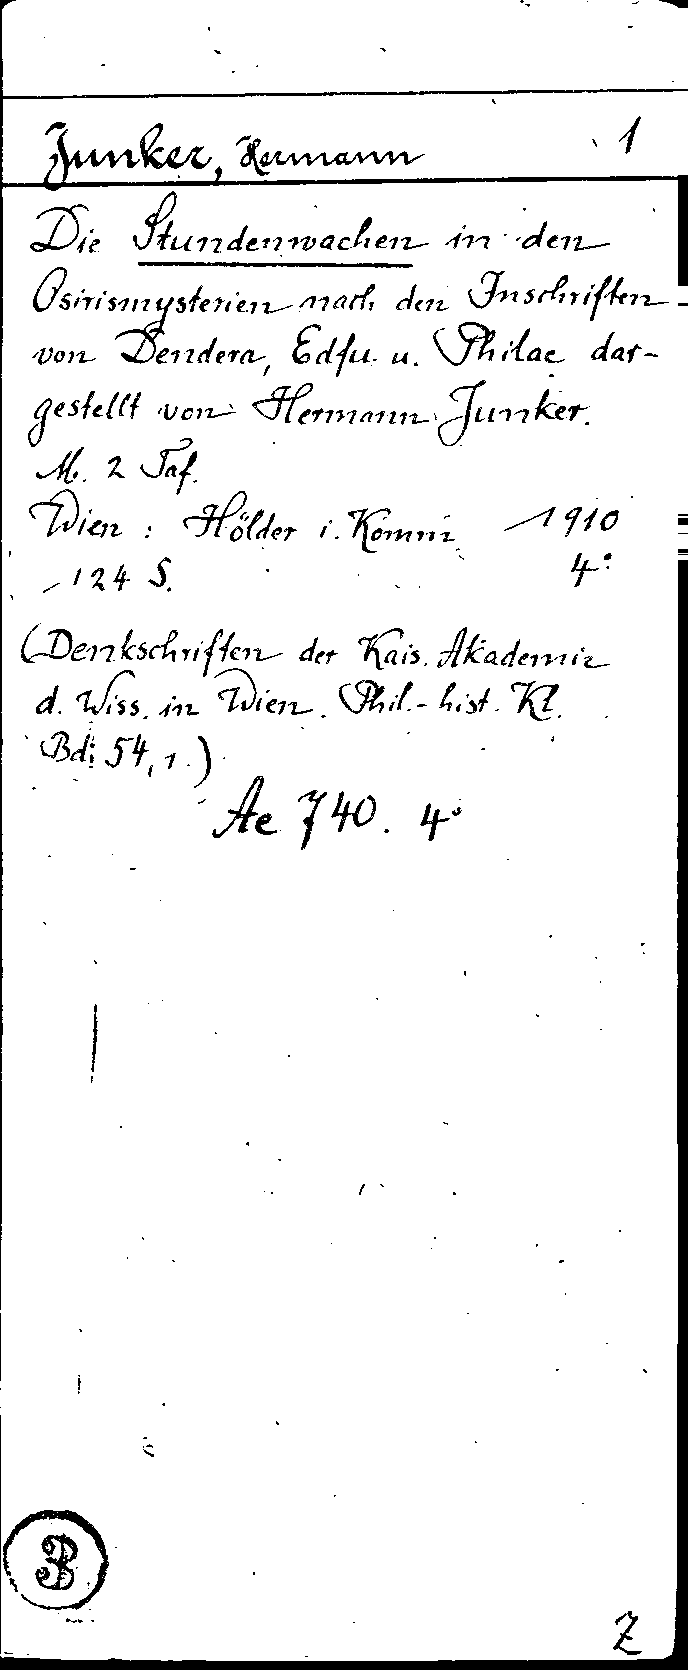 Junker, Hermann 1
Die Stundenwachen in den
Osirismysterien nach den Inschriften
von Dendera, Edfu u. Philae dar-
gestellt von Hermann Junker.
M. 2 Taf.
Wien : Hölder i. Komm. 1910
124 S. 4°
(Denkschriften der Kais. Akademie
d. Wiss. in Wien. Phil.-hist. Kl.
Bd. 54, 1.)
Ae 740. 4°
Z